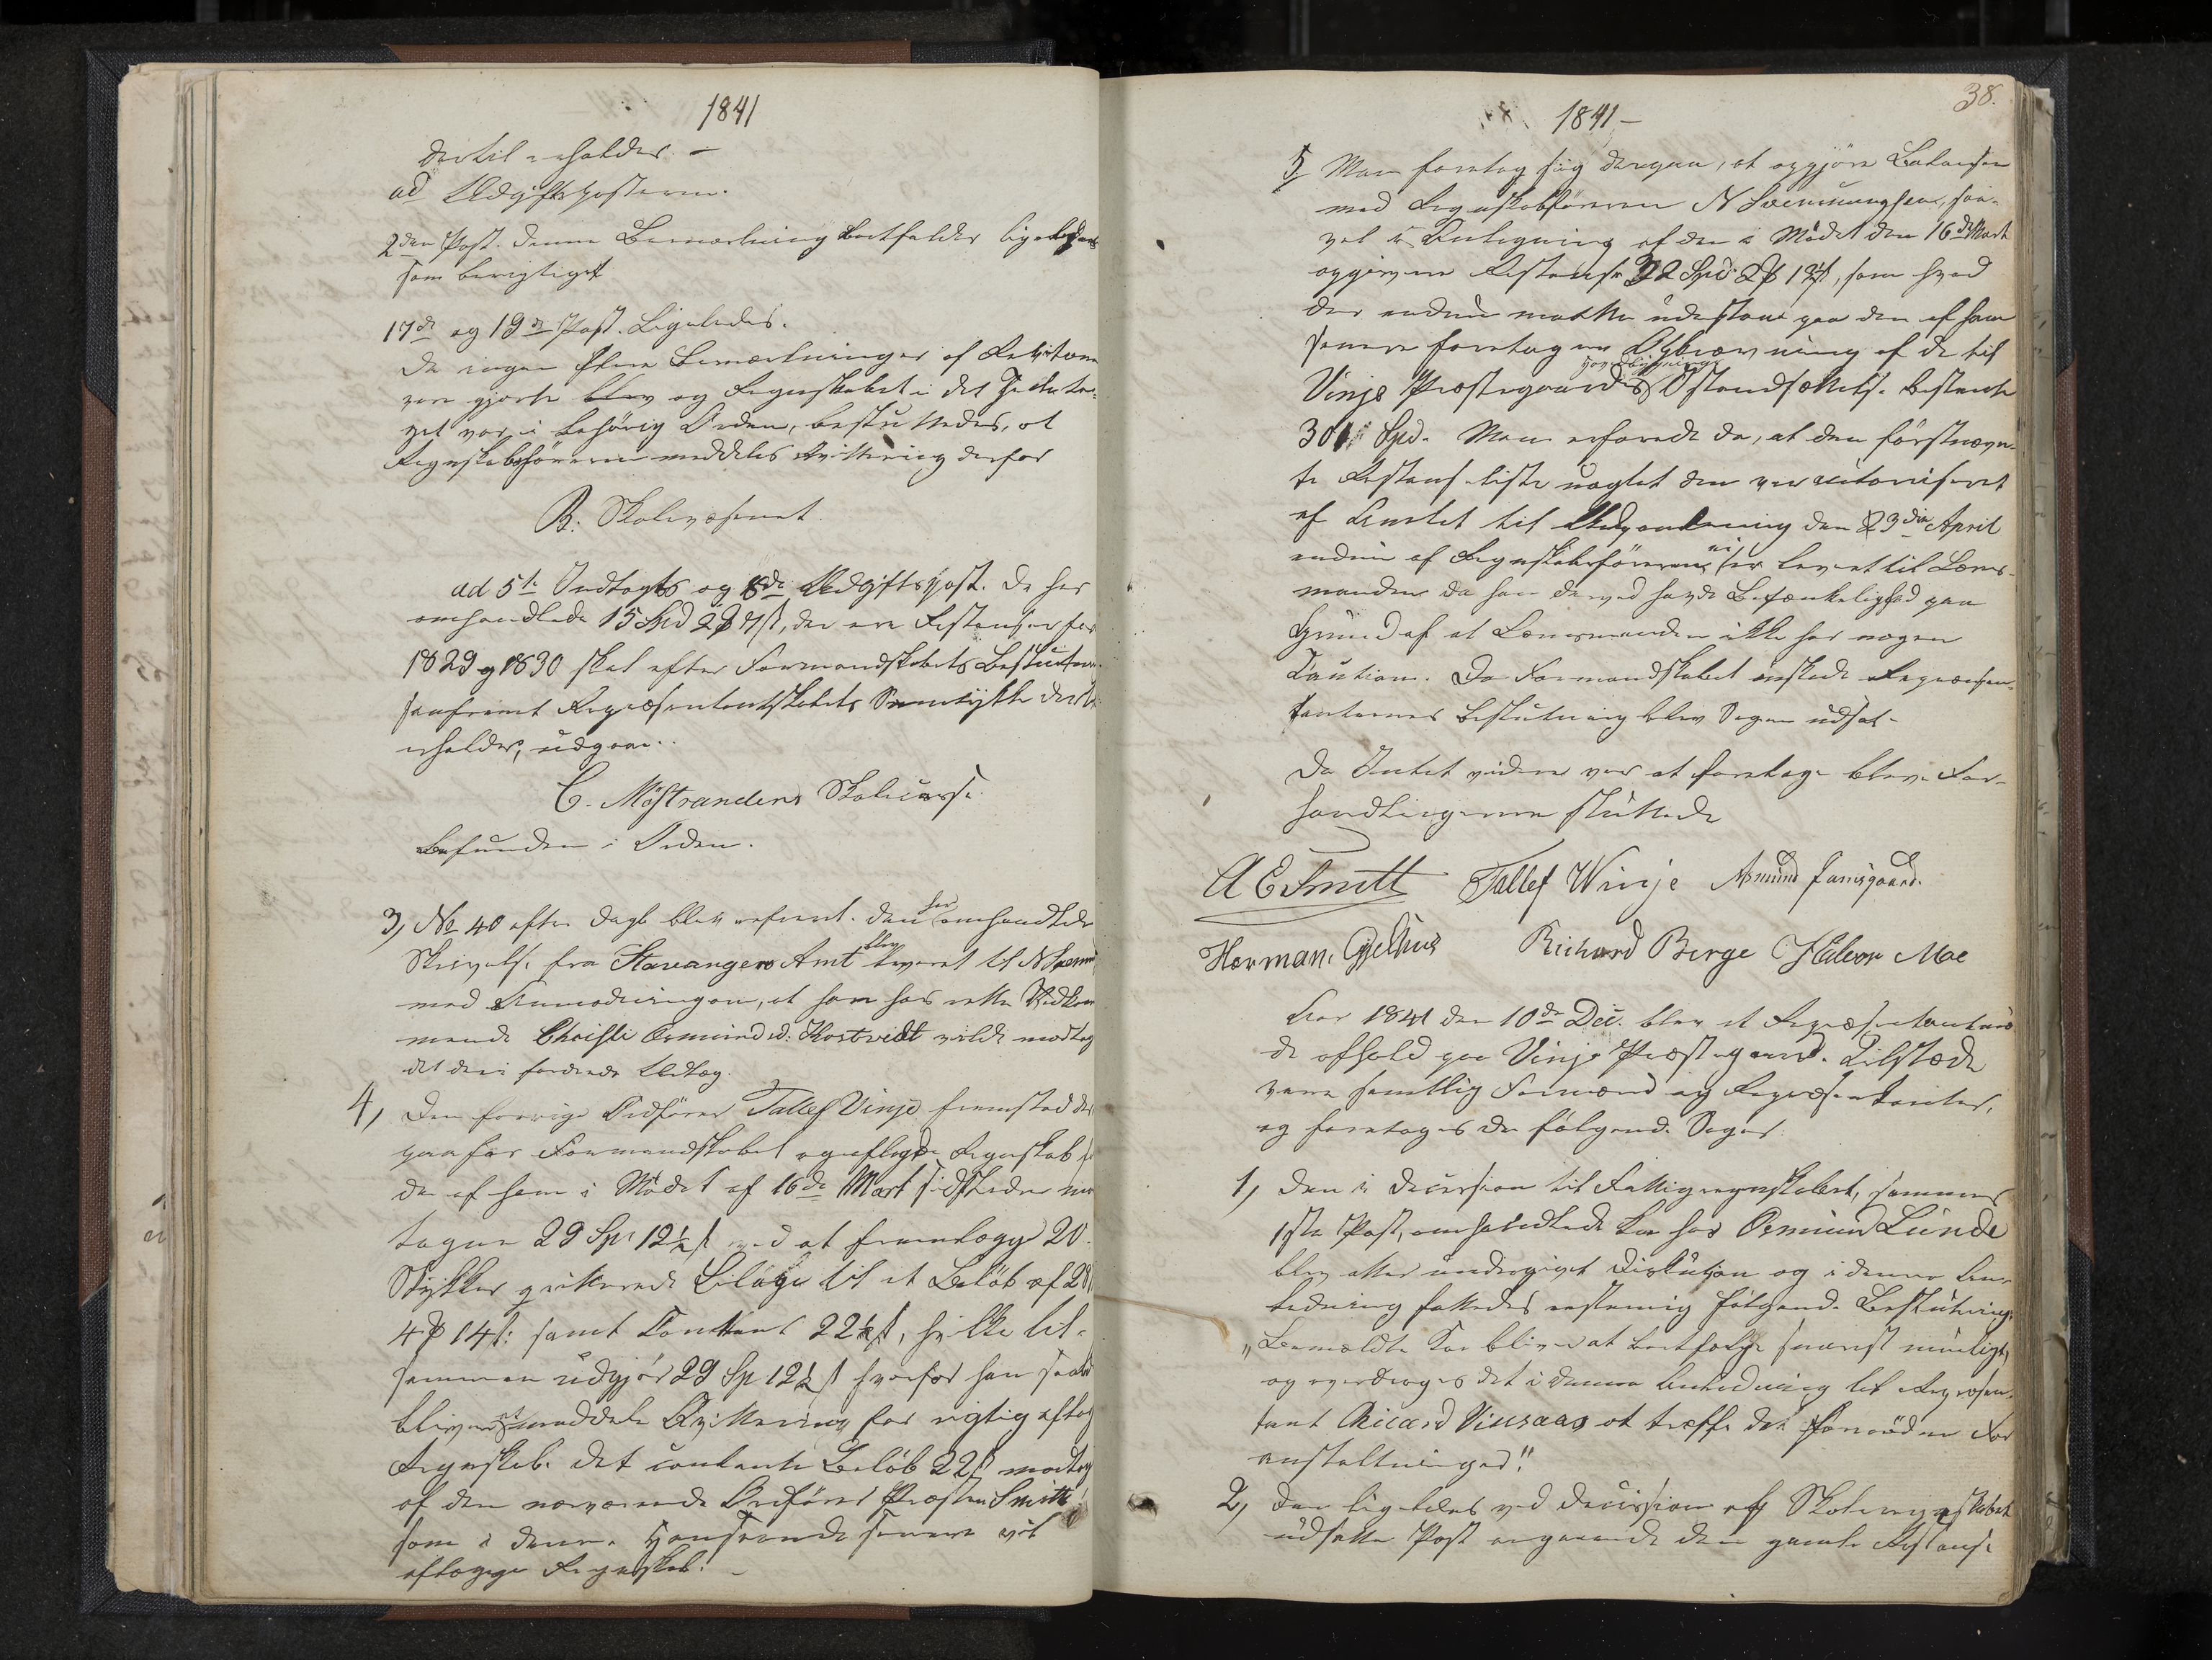 1841
dertil erholdes. –
ad Udgiftsposterne.
2den Post. Denne Bemærkning bortfalder ligeledes
som berigtiget
17de og 19de Post. Ligeledes.
Da ingen flere Bemærkninger af Revisorerne
vare gjorte blev og Regnskabet i det Hele ta-
get var i behörig Orden, besluttedes, at
Regnskabsföreren meddeles Qvittering derfor
B. Skolevæsenet.
ad 5te Indtægts og 8de Udgiftspost. De her
omhandlede 15 Spd 2 ₰ 7 ß, der ere Restanser for
1829 og 1830 skal efter Formandskabets Beslutning
saafremt Repræsentantskabets Samtykke dertil
erholdes, udgaae.
C. Möstrandens Skolecasse.
Befunden i Orden.
3, No 40 efter Dagb. blev refereret. Den her omhandlede
Skrivelse fra Stavangers Amt blev leveret til N Svenn
med Anmodningen, at han hos rette Vedkom
mende Christi Osmundsd: Kostvedt vilde modtage
det deri fordrede Udlæg.
4, Den forrige Ordförer Tallef Vinje fremstod der
paa for Formandskabet og aflagde Regnskab for
de af ham i Mödet af 16de Mart sidstleden mod
tagne 29 Sp. 12½ ß ved at fremlægge 20
Stykker qvitterede Bilage til et Belöb af 28
4 ₰ 14 ß: samt Contant 22½ ß, hvilke til-
sammen udgjör 29 Sp 12½ ß hvorfor han saaledes
bliver at meddele Qvittering for rigtig aflagt
Regnskab. Det contante Belöb 22 ß modtog
af den nærværende Ordförer Præsten Smitt
som i denne Henseende senere vil
aflægge Regnskab. –
38.
1841 –
5 Man foretog sig derpaa, at opgjöre Balansen
med Regnskabsföreren N Svennungsen, saa-
vel i Anledning af den i Mödet den 16de Mart
opgivne Restanse 32 Spd. 2 ₰ 12 ß, som hvad
der endnu maatte udestaae paa den af ham
senere foretagne Opkrævning af de til
Vinje Præstegaards Hovedbygnings Istandsættelse bestemte
301 Spd. Man erfarede da, at den förstnævn-
te Restanseliste uagtet den var autoriseret
af Amtet til Udpantning den 23die April
endnu af Regnskabsföreren ei er levert til Lens-
manden da han derved havde Betænkelighed paa
Grund af at Lensmanden ikke har nogen
Caution. Da Formandskabet önskede Repræsen-
tanternes Beslutning blev Sagen udsat. –
Da Intet videre var at foretage bleve For-
handlingerne sluttede
A E Smitt Tallef Winje Asmund Jamsgaard.
Herman Gjelhus Richard Berge Halvor Moe
Aar 1841 den 10de Dec. blev et Repræsentantmö-
de afholdt paa Vinje Præstegaard. Tilstæde
vare samtlig Formænd og Repræsentanter,
og foretoges da fölgende Sager:
1, Den i Decision til Fattigregnskabet, sammes
1ste Post, omhandlede Ko hos Osmund Lunde
blev atter undergivet Diskution og i denne An-
ledning fattedes enstemmig fölgende Beslutning:
„Bemældte Ko bliver at bortsælge snarest muligt,
og overdrages det i denne Anledning til Repræsen-
tant Ricard Vinsaas at træffe det fornödne For
anstaltninger!"
2, Den ligeledes ved Decission af Skoleregnskabet
udsatte Post angaaende den gamle Restanse